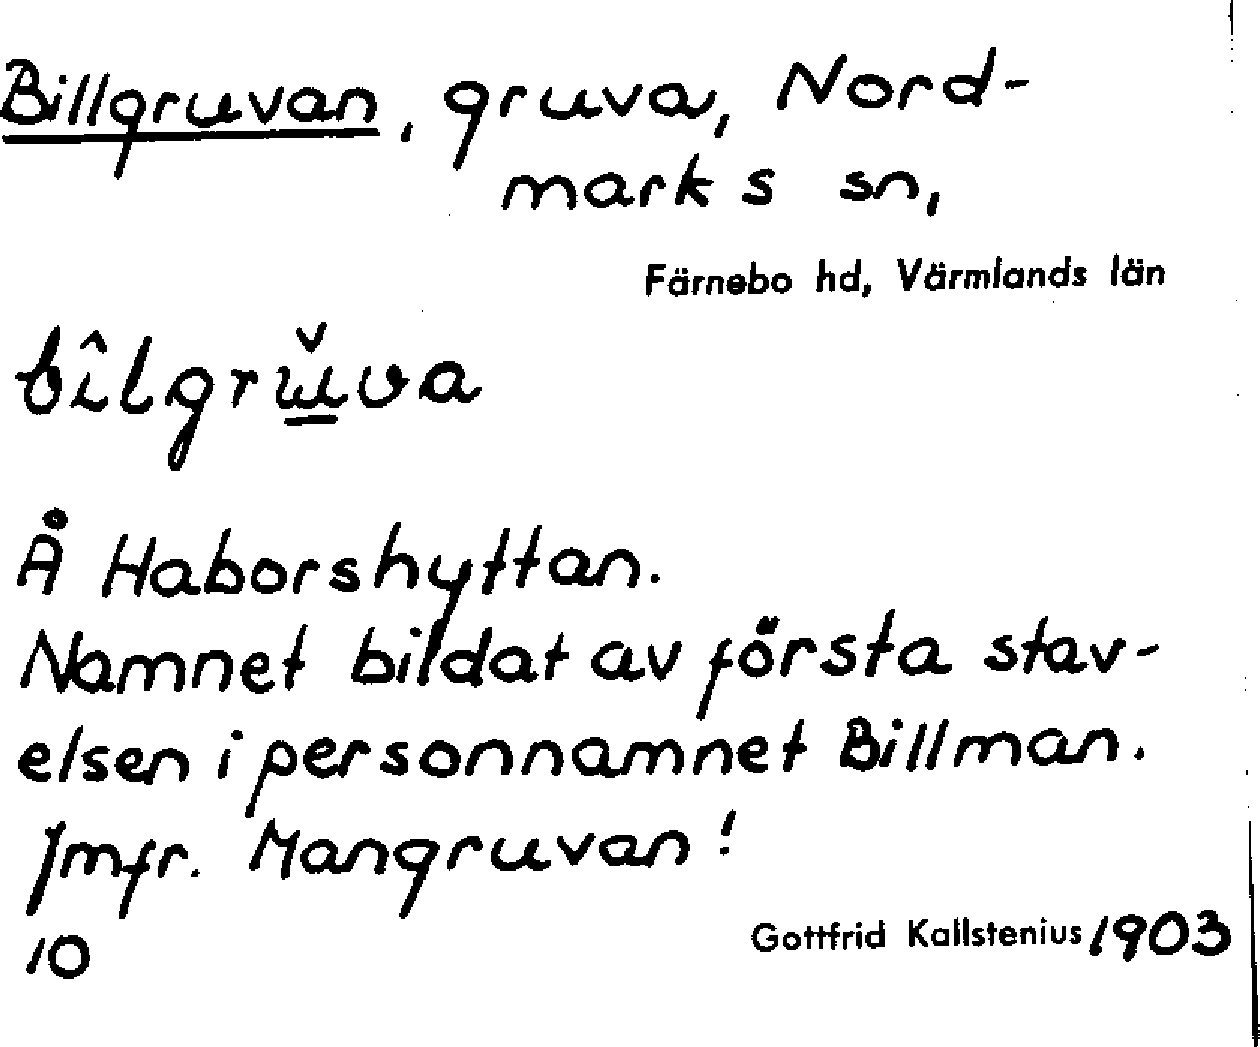 Billgruvan, gruva, Nord-
marks sn,
Färnebo hd, Värmlands län
bîlgrɯ̲̌va
Å Haborshyttan.
Namnet bildat av första stav-
elsen i personnamnet Billman.
Jmfr. Mangruvan!
10
Gottfrid Kallstenius 1903